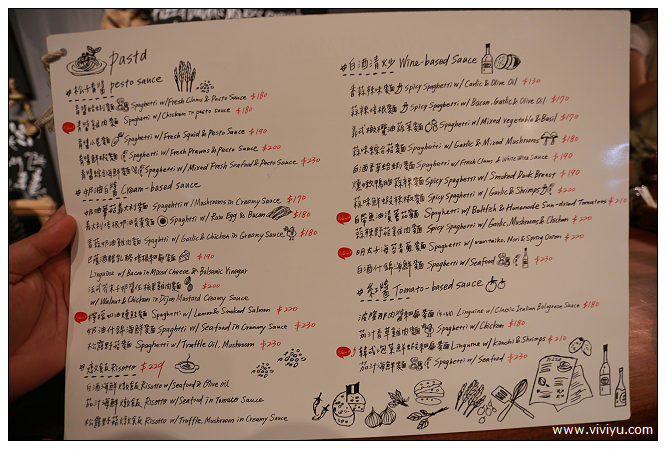 pasta
#松子青醬 pesto sauce
青醬蛤蜊麵 Spaghetti w/Fresh Clams & Pesto Sauce $180
青醬雞肉麵 Spaghetti w/Chicken in pesto sauce $180
青醬小卷麵 Spaghetti w/Fresh Squid & Pesto Sauce $190
青醬鮮蝦麵 Spaghetti w/Fresh Prawns & Pesto Sauce $200
青醬綜合海鮮麵 Spaghetti w/Mixed Fresh Seafood & Pesto Sauce $230
#奶油白醬 Cream-based sauce
奶油蘑菇義大利麵 Spaghetti w/Mushrooms in Creamy Sauce $170
義大利培根奶油蛋黃麵 Spaghetti w/Raw Egg & Bacon $180
香蒜奶油雞肉麵 Spaghetti w/Garlic & Chicken in Creamy Sauce $180
巴薩米克醋乳酪培根扁麵 $190
Linguine w/Bacon in Mixed Cheese & Balsamic Vinegar
法式芥末籽醬核桃雞肉麵 $200
w/Walnut & Chicken in Dijon Mustard Creamy Sauce
檸檬奶油燻鮭魚麵 Spaghetti w/Lemon & Smoked Salmon $220
奶油什錦海鮮麵 Spaghetti w/Seafood in Creamy Sauce $230
松露野菇麵 Spaghetti w/Truffle Oil, Mushroom $230
#燉飯 Risotto $220
白酒海鮮燉飯 Risotto w/Seafood & Olive oil
茄汁海鮮燉飯 Risotto w/Seafood in Tomato Sauce
松露野菇燉飯 Risotto w/Truffle, Mushroom in Creamy Sauce
#白酒清炒 Wine-based Sauce
香蒜辣味麵 Spicy Spaghetti w/Garlic & Olive Oil $130
蒜辣培根麵 Spicy Spaghetti w/Bacon, Garlic & Olive Oil $170
義式橄欖油蔬菜麵 Spaghetti w/Mixed Vegetable & Basil $170
蒜味綜合菇麵 Spaghetti w/Garlic & Mixed Mushroom $170
白酒香草蛤蜊麵 Spaghetti w/Fresh Clams & White Wine Sauce $190
煙燻鴨胸蒜辣麵 Spicy Spaghetti w/Smoked Duck Breast $190
蒜味鮮蝦辣麵 Spicy Spaghetti w/Garlic & Shrimps $200
Spaghetti w/Batfish & Homemade Sun-dried Tomatoes $210
蒜辣野菇雞肉麵 Spicy Spaghetti w/Garlic, Mushroom & Chicken $220
明太子海苔青蔥麵 Spaghetti w/mentaiko, Nori & Spring Onion $220
白酒什錦海鮮麵 Spaghetti w/Seafood $230
#紅醬 Tomato-based sauce
波隆那肉醬扁麵 Linguine w/Classic Italian Bolognese Sauce $180
茄汁香草雞肉麵 Spaghetti w/Chicken $180
韓式泡菜鮮蝦扁麵 Linguine w/Kimchi & Shrimps $210
茄汁海鮮麵 Spaghetti w/Seafood $230
www.viviyu.com